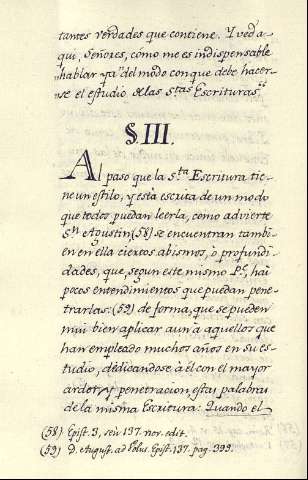 tantes verdades que contiene. Y ved a-
qui, Señores, cómo me es indispensable
hablar ya del modo con que debe hacer-
se el estudio de las Stas Escrituras.
§. III.
Al paso que la Sta Escritura tie-
ne un estilo, y está escrita de un modo
que todos puedan leerla, como advierte
Sn Agustin (58) se encuentran tambi-
en en ella ciertos abismos, ò profundi-
dades, que, segun este mismo Pe, hai
pocos entendimientos que puedan pene-
trarlas: (59) de forma, que se pueden
mui bien aplicar aun à aquellos que
han empleado muchos años en su es-
tudio, dedicandose à él con el mayor
ardor, y penetracion, estas palabras
de la misma Escritura: Quando el
(58) Epist. 3, seù 137. nov. edit.
(59) D. August. ad Volus. Epist. 137. pag. 399.